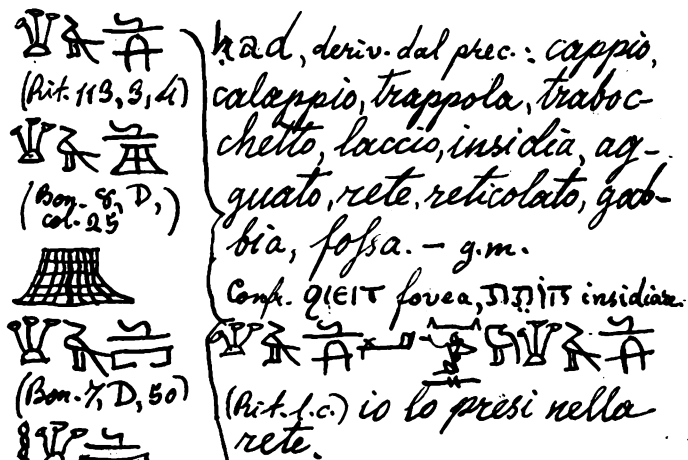 (Rit. 113, 3, 4)
(Bon. 8, D,
col. 25)
(Bon. 7, D, 50)
had, deriv. dal prec.: cappio,
calappio, trappola, traboc-
chetto, laccio, insidia, ag-
guato, rete, reticolato, gab-
bia, fossa. – g.m.
Confr. ϩⲓⲉⲓⲧ fovea, insidiare.
(Rit. l.c.) io lo presi nella
rete.